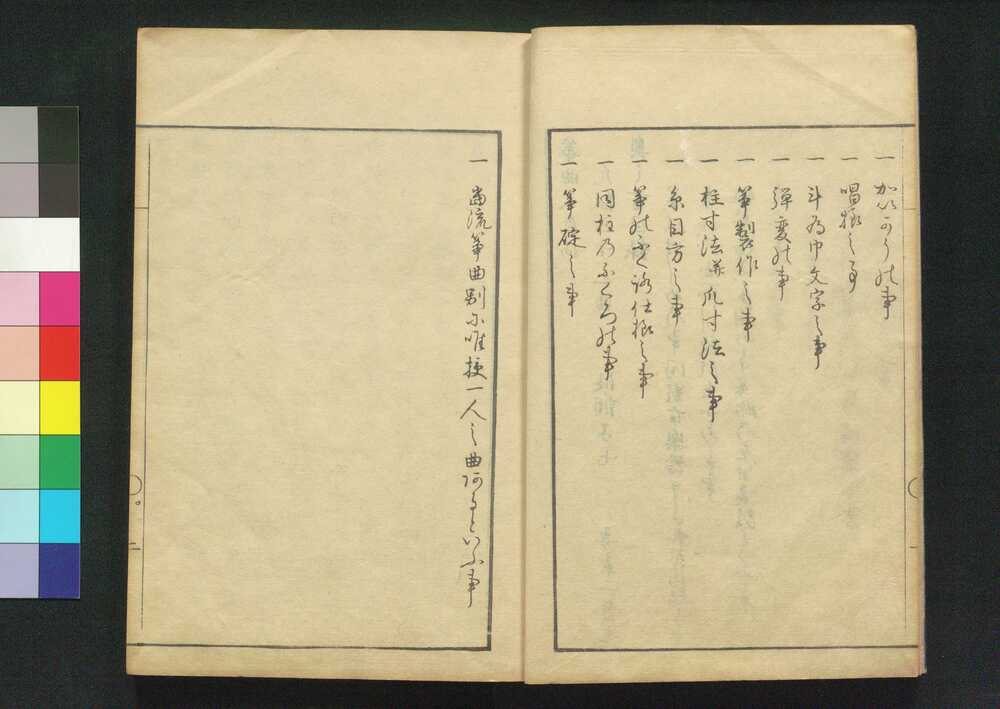 一 加以
一 唱様之事
一 斗為巾文字之事
一 弾変の事
一 箏製作之事
一 柱寸法并爪寸法之事
一 糸目方之事
一 箏の 仕様之事
一 同柱乃 の事
一 箏碇之事
一 当流箏曲別に唯授一人之曲阿るといふ事